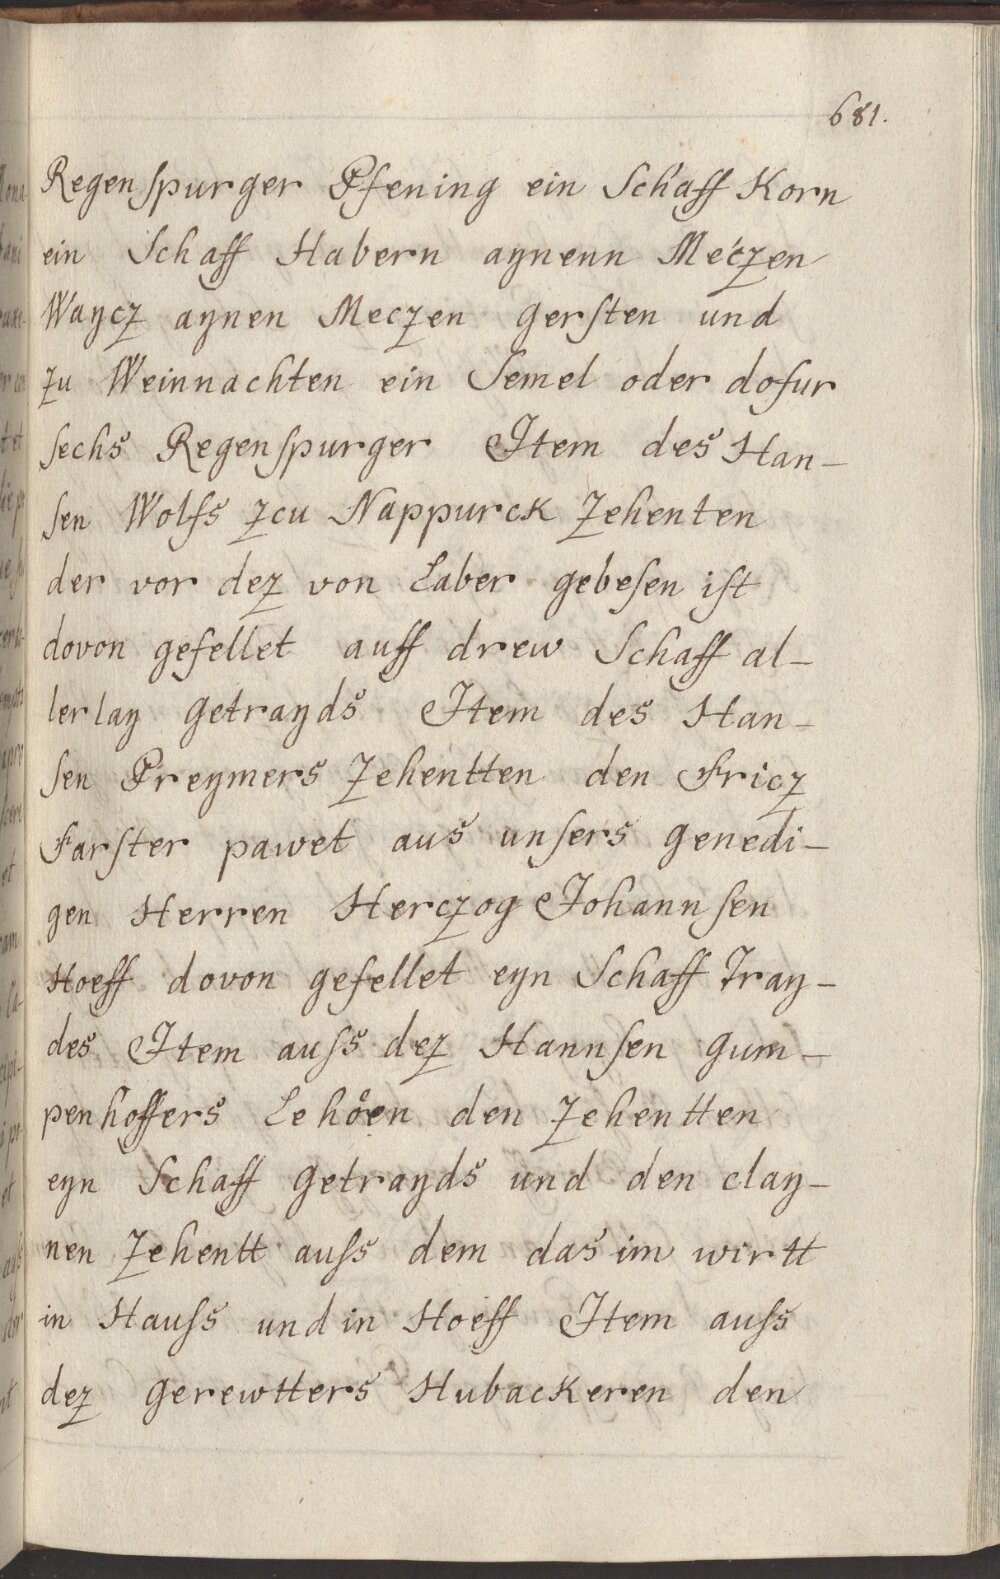 681.
Regenspurger Pfening ein Schaff Korn
ein Schaff Habern aynenn Meczen
Waycz aynen Meczen gersten und
zu Weinnachten ein Semel oder dofur
sechs Regenspurger Item des Han-
sen Wolfs zcu Nappurck Zehenten
der vor dez von Laber gebesen ist
dovon gefellet auff drew Schaff al-
lerlay getrayds Item des Han-
sen Preymers Zehentten den Fricz
Farster pawet aus unsers genedi-
gen Herren Herczog Johannsen
Hoeff dovon gefellet eyn Schaff Tray-
des Item auss dez Hannsen gum-
penhoffers Lehöen den Zehentten
eyn Schaff getrayds und den clay-
nen Zehentt auss dem das im wirtt
in Hauss und in Hoeff Item auss
dez gerewtters Hubackeren den